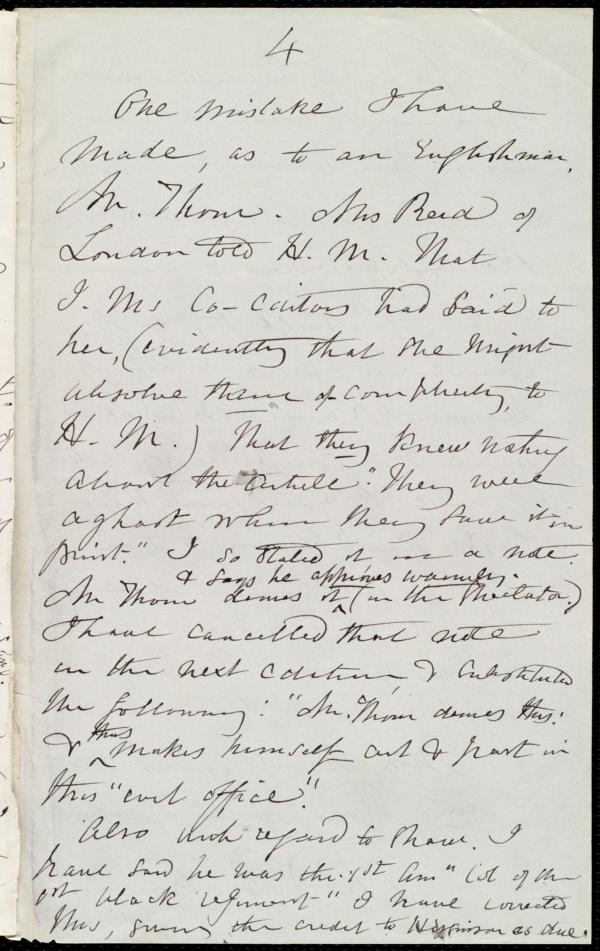 4
One mistake I have
made, as to an Englishman,
Mr. Thom. Mrs Reid of
London told H. M. that
J. M's Co-editors had said to
her, (evidently that she might
absolve them of complicity, to
H. M.) that they knew nothing
about the article". They were
aghast when they saw it in
print." I so stated it in a note.
& says he approves warmly.
Mr Thom denies it (in the Spectator.)
I have cancelled that note
in the next edition, & substituted
the following: "Mr. Thom denies this:
& thus makes himself art & part in
this "evil office"."
Also with regard to Shaw. I
have said he was the 1st Am" Col of the
1st black regiment" I have corrected
this, giving the credit to Higginson as due.